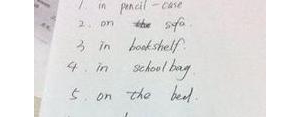 1. in pencil-case
2. on sofa
3 in bookshelf.
4. in school bag.
5. on the bed.